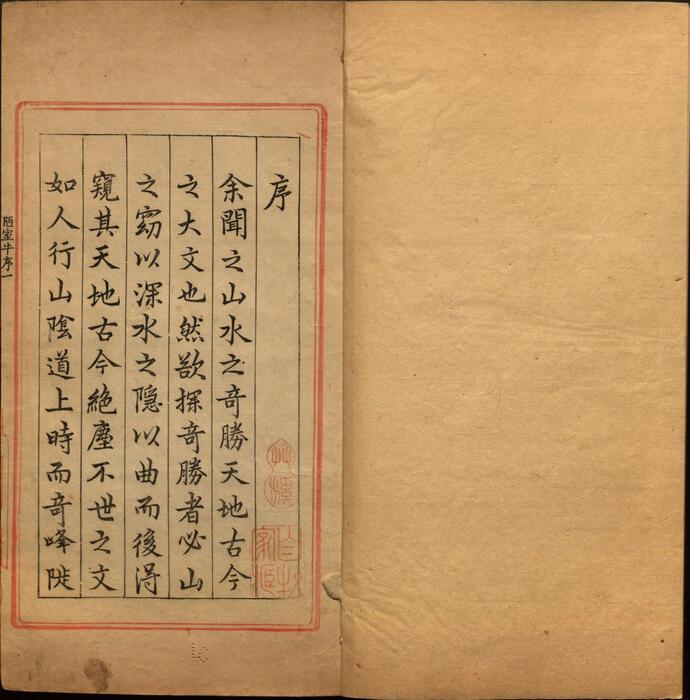 序
余聞之山水之奇勝天地古今
之大文也然欲探奇勝者必山
之窈以深水之隱以曲而後淂
窺其天地古今絶塵不世之文
如人行山陰道上時而竒峰陡
序一